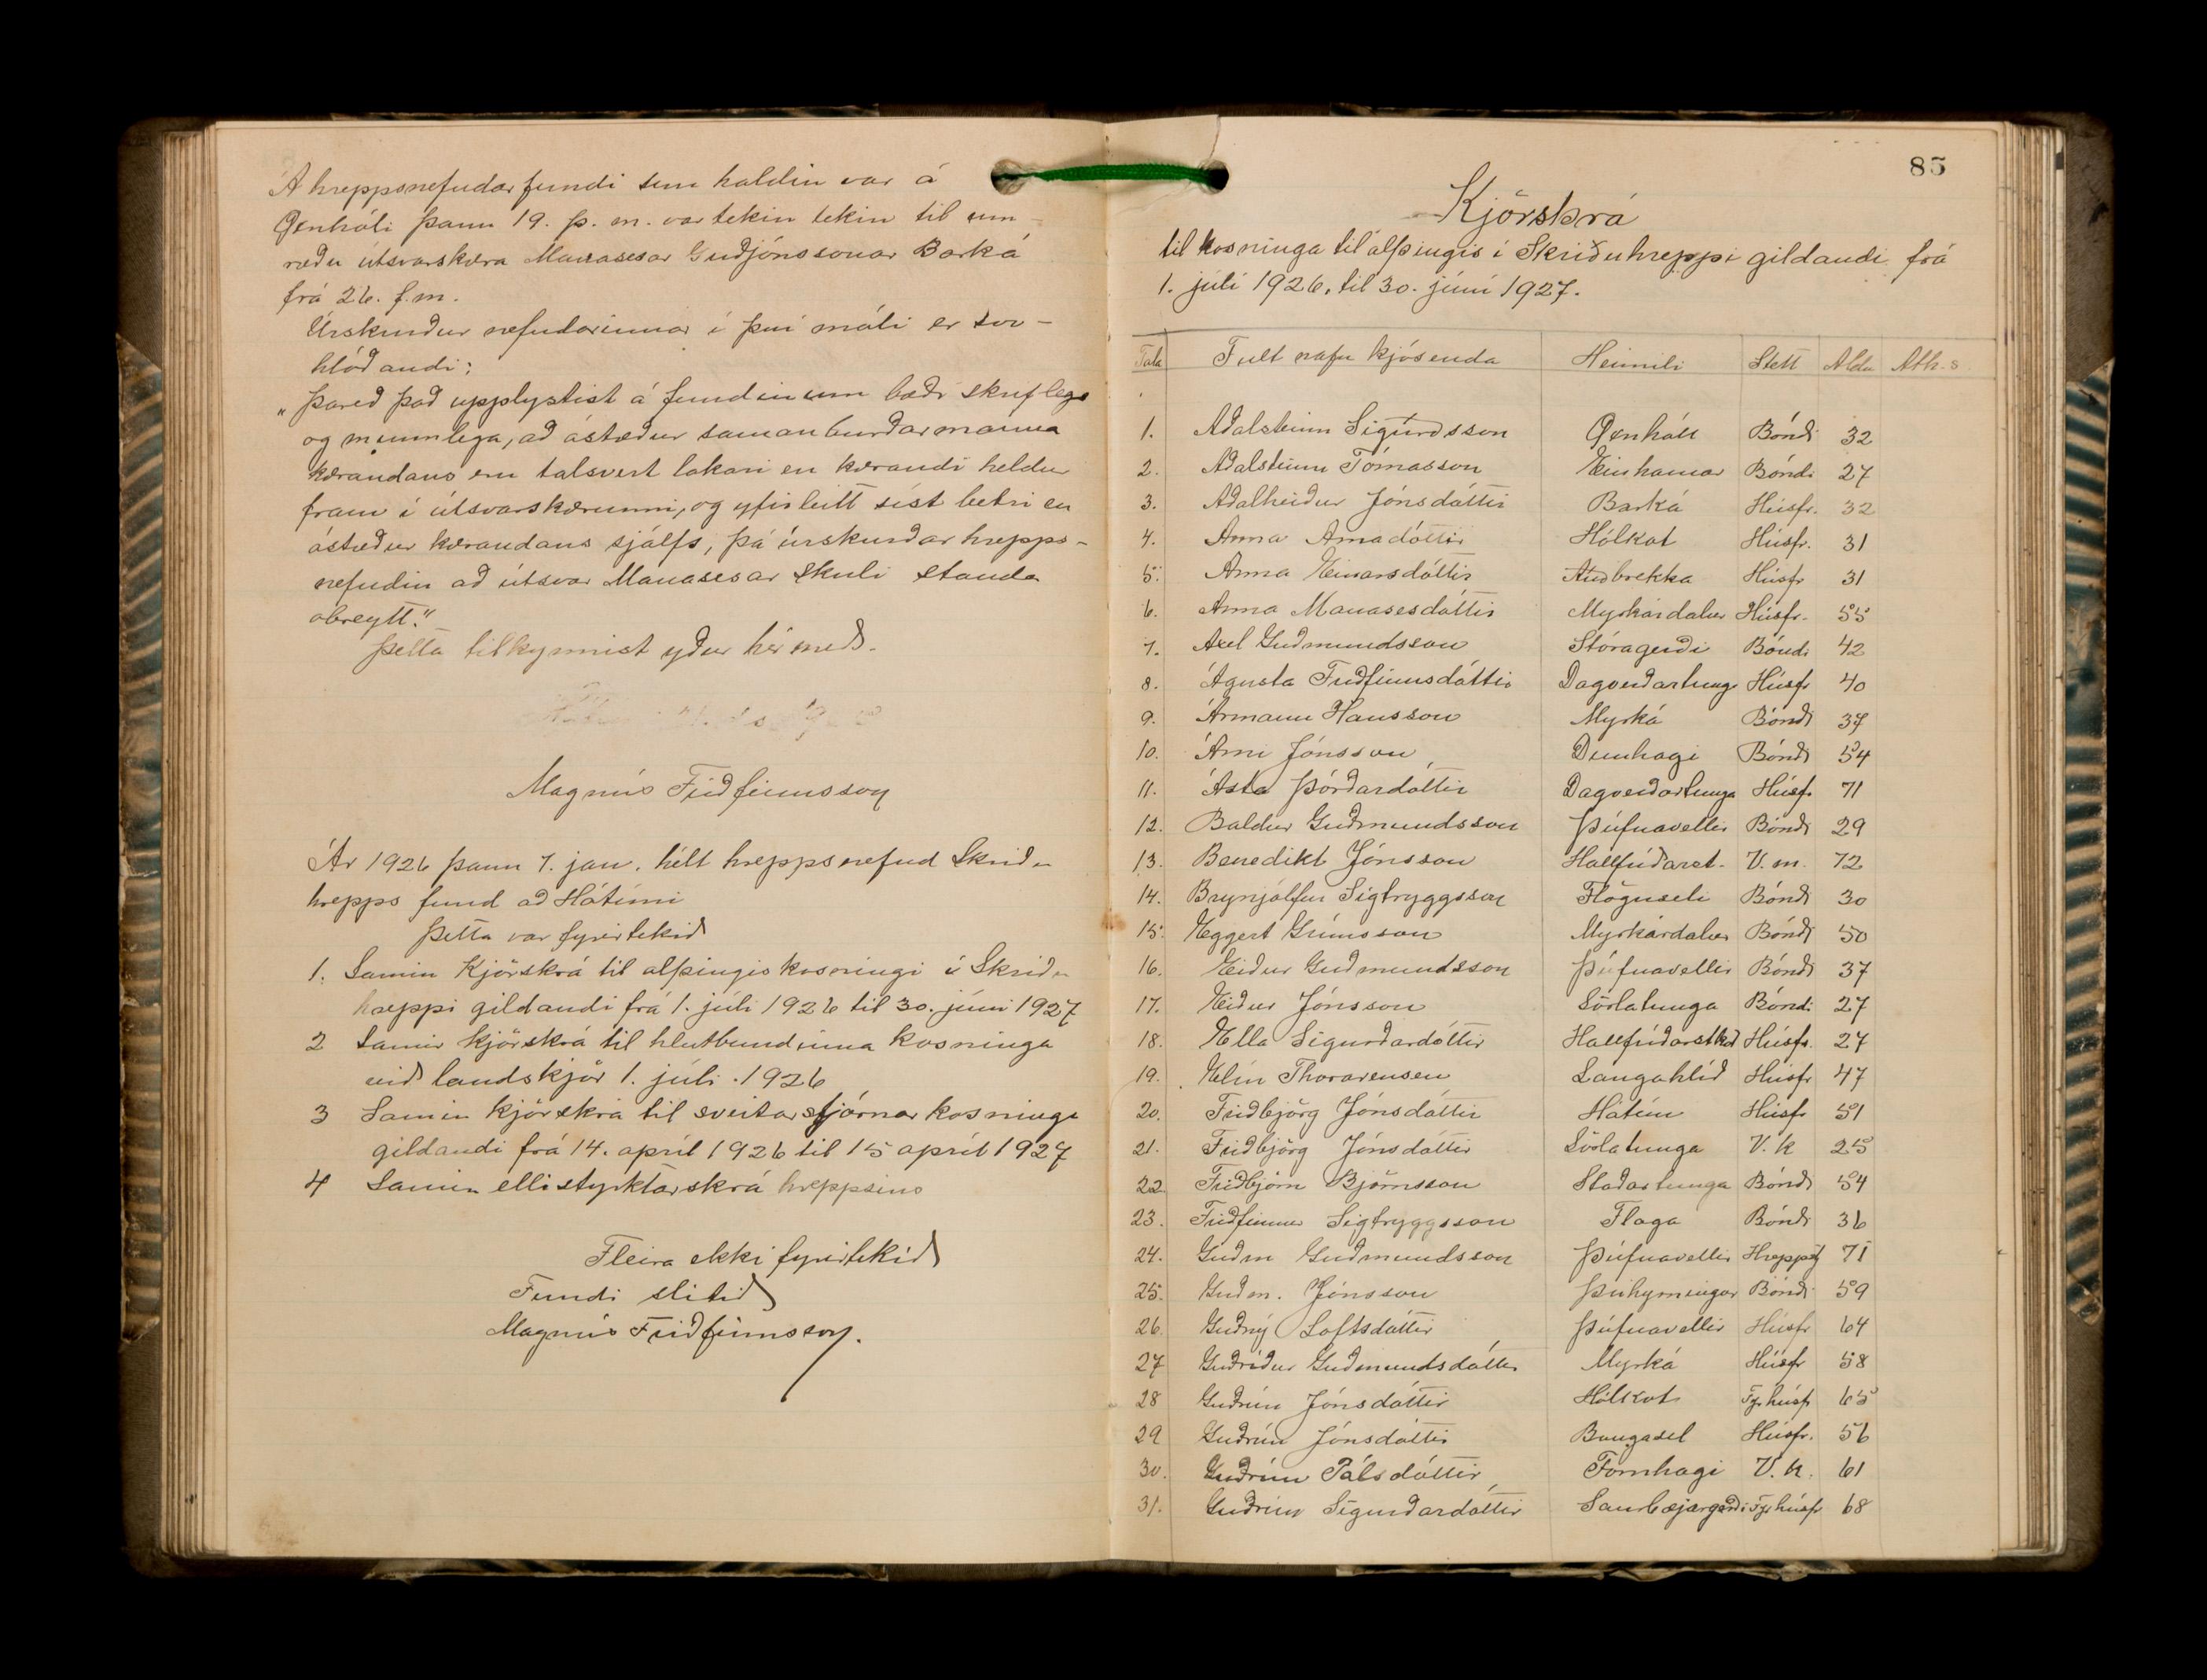 Á hreppsnefndarfundi sem haldin var á
Öxnhóli þann 19. þ. m. var tekin tekin til um-
ræðu útsvarskæra Manasesar Guðjónssonar Barká
frá 26. f.m.
Úrskurður nefndarinnar í því máli er svo-
hlóðandi:
„Þareð það upplystist á fundinum bæði skriflega
og munnlega, að ástæður samanburðarmanna
kærandans eru talsvert lakari en kærandi heldur
fram í útsvarskærunni, og yfirleitt síst betri en
ástæður kærandans sjálfs, þá úrskurðar hrepps-
nefndin að útsvar Manasesar skuli standa
óbreytt."
Þetta tilkynnist yður hér með.
Magnús Friðfinnsson
Ár 1926 þann 7. jan. hélt hreppsnefnd Skriðu
hrepps fund að Hátúni
Þetta var fyrirtekið
1. Samin Kjörskrá til alþingis kosningi í Skriðu
hreppi gildandi frá 1. júli 1926 til 30. júni 1927
2 Samin kjörskrá til hlutbundinna kosninga
við landskjör 1. júli. 1926
3 Samin kjörskrá til sveitarstjórnar kosninga
gildandi frá 14. apríl 1926 til 15 apríl 1927
4 Samin ellistyrktarskrá hreppsins
Fleira ekki fyrirtekið
Fundi slitið
Magnús Friðfinnsson.
85
Kjörskrá
til kosninga til alþingis í Skriðuhreppi gildandi frá
1. júlí 1926, til 30. júní 1927.
Tala Fult nafn kjósenda Heimili Stétt Aldur Ath.s
1. Aðalsteinn Sigurðsson Öxnhóll Bóndi 32
2. Aðalsteinn Tómasson Einhamar Bóndi 27
3. Aðalheiður Jónsdóttir Barká Húsfr. 32
4. Anna Arnadóttir Hólkot Húsfr. 31
5. Anna Einarsdóttir Auðbrekka Húsfr 31
6. Anna Manasesdóttir Myrkárdalur Húsfr. 55
7. Axel Guðmundsson Stóragerði Bóndi 42
8. Ágústa Friðfinnsdóttir Dagverðartunga Húsfr 40
9. Ármann Hansson Myrká Bóndi 37
10. Árni Jónsson Dunhagi Bóndi 54
11. Ásta Þórðardóttir Dagverðartunga Húsfr 71
12. Baldur Guðmundsson Þúfnavellir Bóndi 29
13. Benedikt Jónsson Hallfríðarst. V. m. 72
14. Brynjólfur Sigtryggsson Flöguseli Bóndi 30
15. Eggert Grímsson Myrkárdalur Bóndi 50
16. Eiður Guðmundsson Þúfnavellir Bóndi 37
17. Eiður Jónsson Sörlatunga Bóndi 27
18. Ella Sigurðardóttir Hallfríðarstkot Húsfr. 27
19. Elín Thorarensen Langahlíð Húsfr 47
20. Friðbjörg Jónsdóttir Hátún Húsfr 51
21. Friðbjörg Jónsdóttir Sörlatunga V. k 25
22 Friðbjörn Björnsson Staðartunga Bóndi 54
23. Friðfinnur Sigtryggsson Flaga Bóndi 36
24. Guðm Guðmundsson Þúfnavellir Hreppstj 71
25. Guðm. Jónsson Þríhyrningur Bóndi 59
26. Guðný Loftsdóttir Þúfnavellir Húsfr 64
27 Guðríður Guðmundsdóttir Myrká Húsfr 58
28 Guðrún Jónsdóttir Hólkot Fyr húsfr 65
29 Guðrún Jónsdóttir Baugasel Húsfr. 56
30. Guðrún Pálsdóttir Fornhagi V. k. 61
31. Guðrún Sigurðardóttir Saurbæjargerði Fyr húsfr 68